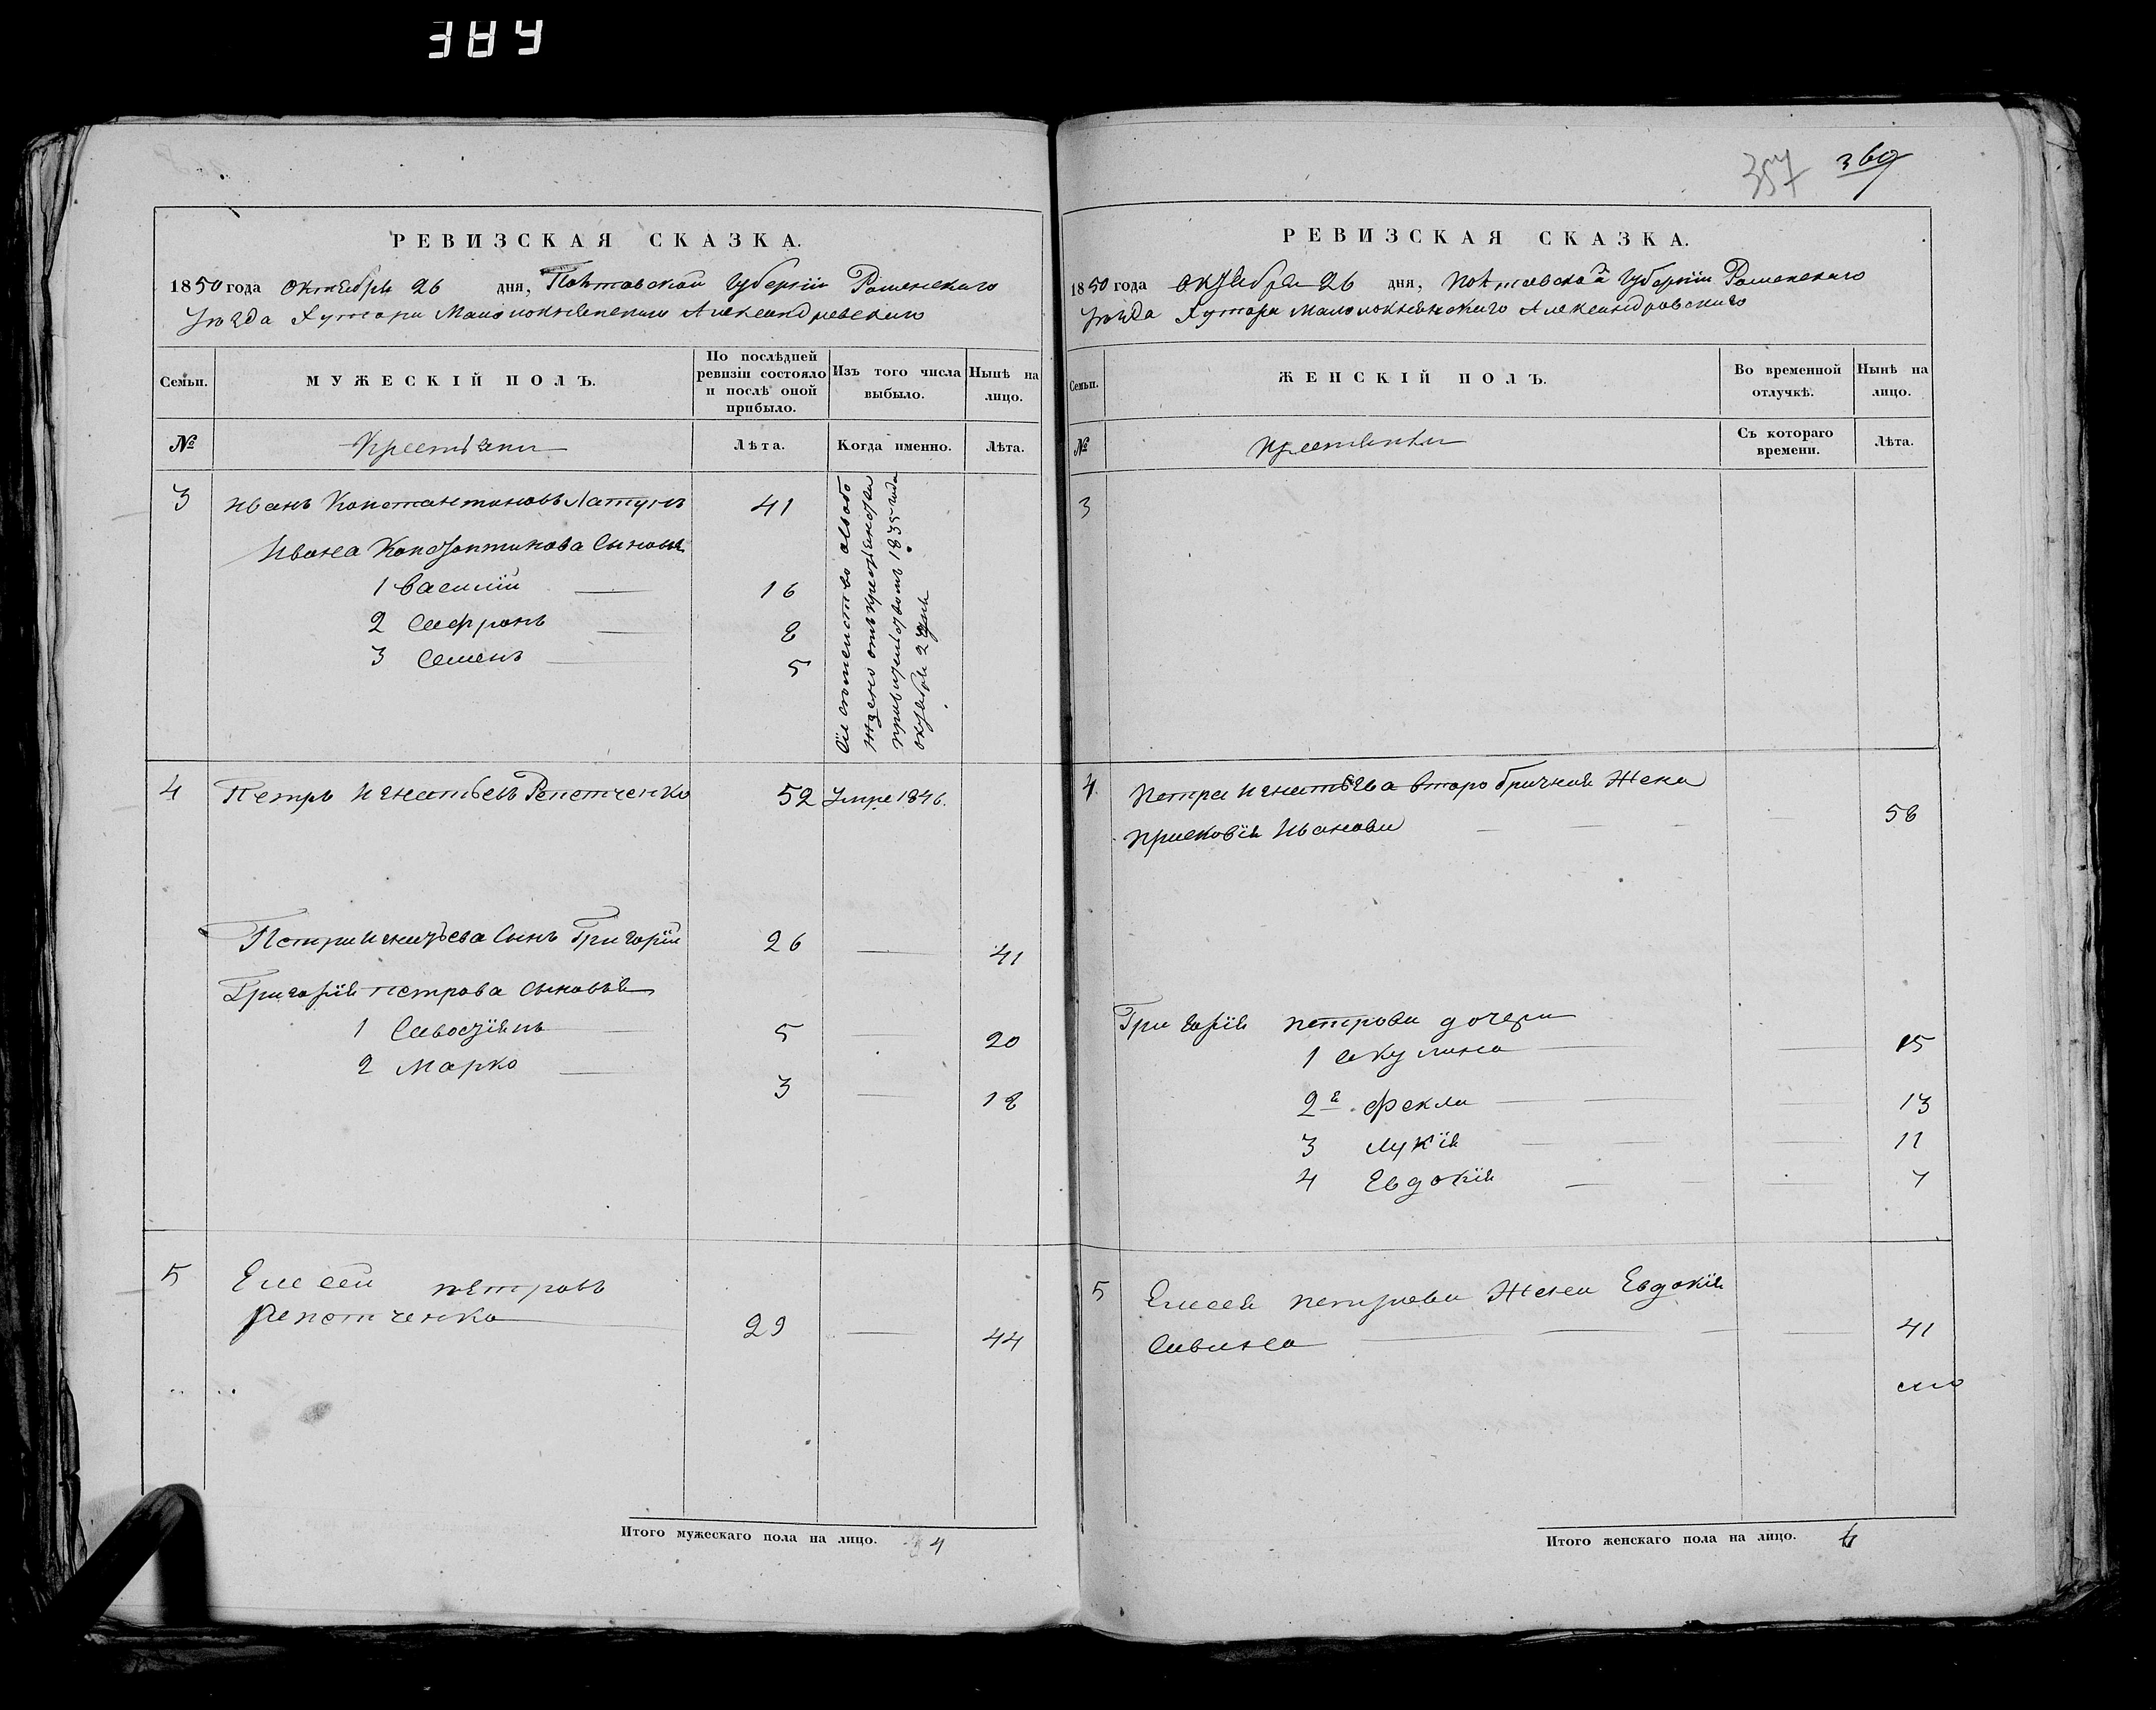 384
РЕВИЗСКАЯ СКАЗКА.
1850 года Октября 26 дня, Полтавской Губернiи Роменскаго
Уезда Хутора Александровскаго
Семьи.
МУЖЕСКIЙ ПОЛЪ.
По послѣдней ревизiи состояло и послѣ оной прибыло.
Изъ того числа выбыло.
Нынѣ на лицо.
№
Крестьяне
Лѣта.
Когда именно.
Лѣта.
3 Иванъ Константиновъ 41
Ивана Константинова Сыновья
1 Василiй 16
2 Сафронъ 8
3 Семенъ 5
Сiе семейство освобо
ждено отъ
1835 года
октября 2 дня
4 Петръ Игнатьевъ Репетченко 52 Умре 1846.
Петра Игнатьева Сынъ Григорiй 26 41
Григорiя Петрова Сыновья
1 Савостiянъ 5 20
2 Марко 3 18
5 Елесей петровъ
Репетченко 29 44
Итого мужескаго пола на лицо. 4
357 369
РЕВИЗСКАЯ СКАЗКА.
1850 года Октября 26 дня, Полтавской Губернiи Роменскаго
Уезда Хутора Александровскаго
Семьи.
ЖЕНСКIЙ ПОЛЪ.
Во временной отлучкѣ.
Нынѣ на лицо.
№
Крестьянки
Съ котораго времени.
Лѣта.
3
4 Петра Игнатьева второбрачная Жена
Прасковiя Иванова 58
Григорiя петрова дочери
1 Акулина 15
2я Фекла 13
3 Лукiя 11
4 Евдокiя 7
5 Елесея петрова Жена Евдокiя
Савина 41
Итого женскаго пола на лицо. 6